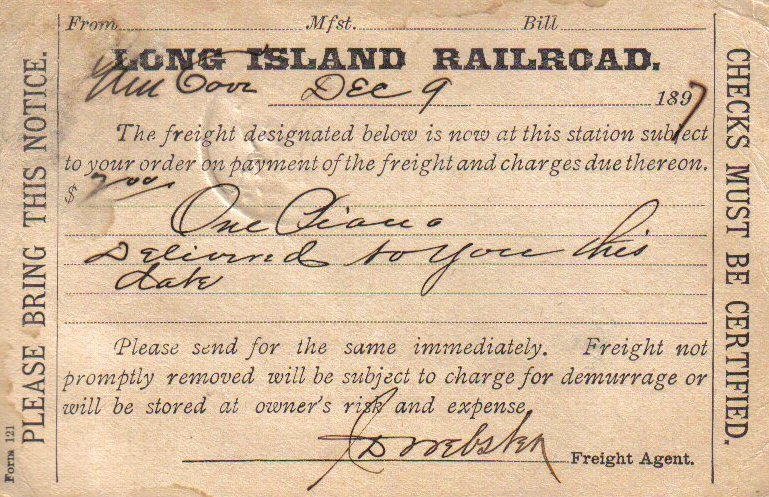 From Mfst. Bill
LONG ISLAND RAILROAD.
Glen Cove Dec 9 1897
The freight designated below is now at this station subject
to your order on payment of the freight and charges due thereon.
$ 2.00
One Piano
Delivered to you this
date
Please send for the same immediately. Freight not
promptly removed will be subject to charge for demurrage or
will be stored at owner's risk and expense.
J D Webster Freight Agent.
PLEASE BRING THIS NOTICE.
Form 121
CHECKS MUST BE CERTIFIED.